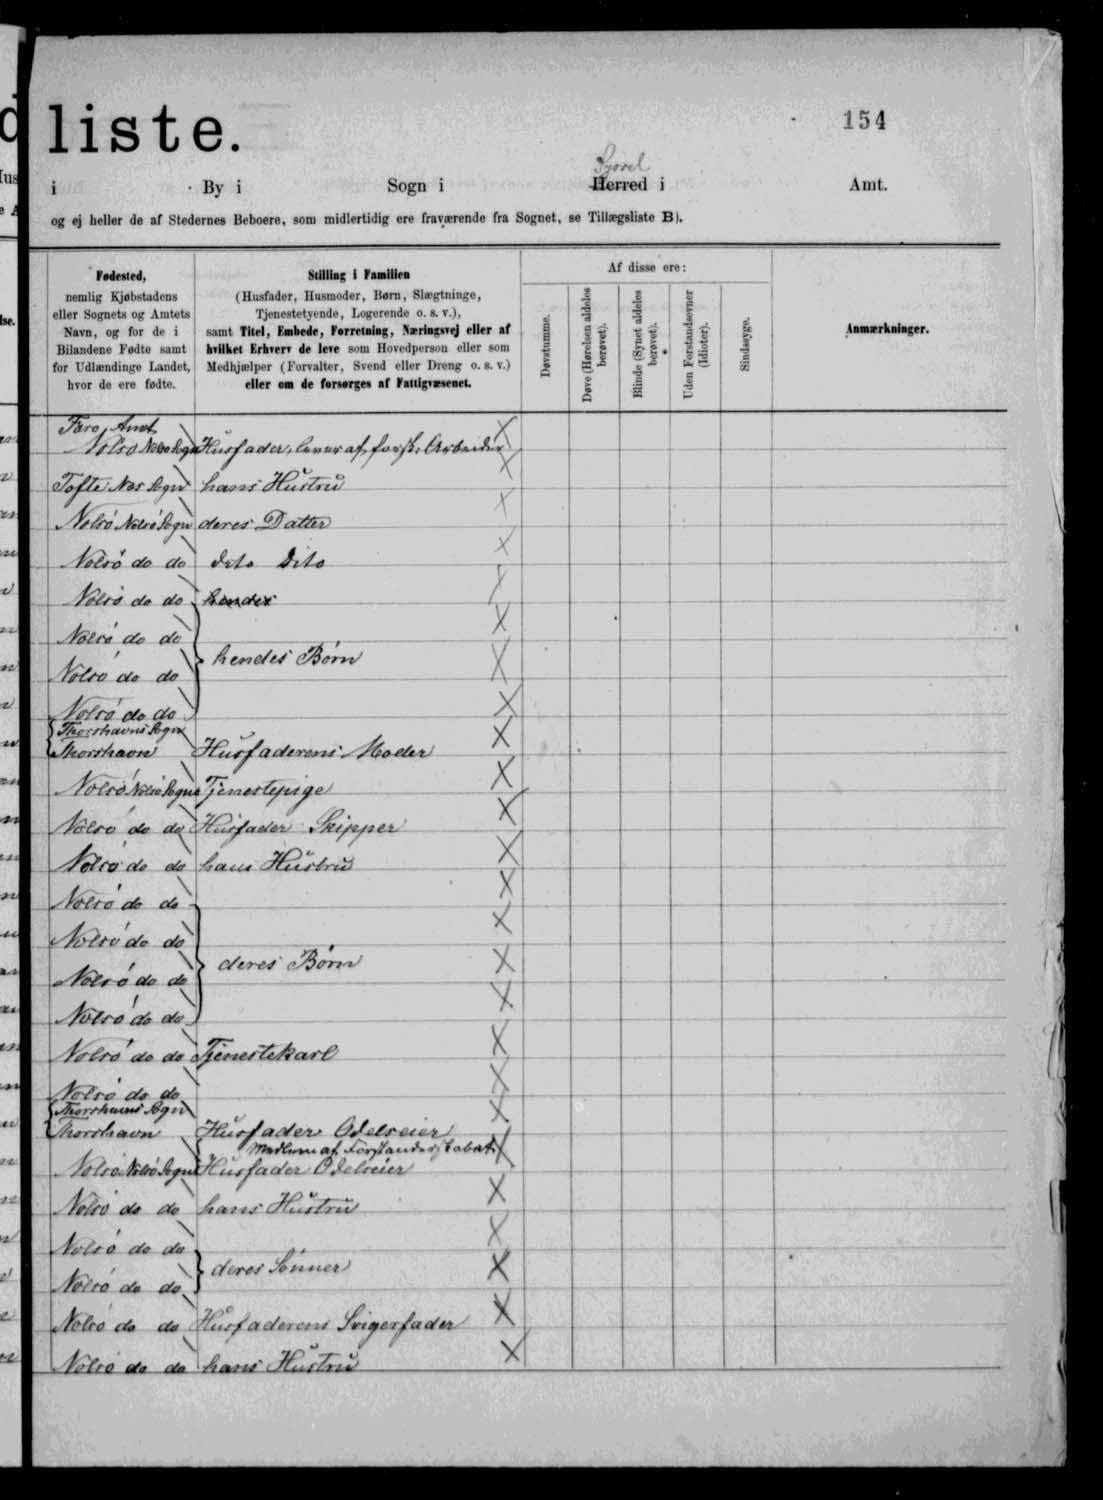 liste.
154
Syssel
i By i Sogn i Herred i Amt.
og ej heller de af Stedernes Beboere, som midlertidig ere fraværende fra Sognet, se Tillægsliste B).
Fødested,
nemlig Kjøbstadens
eller Sognets og Amtets
Navn, og for de i
Bilandene Fødte samt
for Udlændinge Landet,
hvor de ere fødte.
Stilling i Familien
(Husfader, Husmoder, Børn, Slægtninge,
Tjenestetyende, Logerende o. s. v.),
samt Titel, Embede, Forretning, Næringsvej eller af
hvilket Erhverv de leve som Hovedperson eller som
Medhjælper (Forvalter, Svend eller Dreng o. s. v.)
eller om de forsørges af Fattigvæsenet.
Af disse ere:
Døvstumme.
Døve (Hørelsen aldeles berøvet).
Blinde (Synet aldeles berøvet).
Uden Forstandsevner (Idioter).
Sindssyge.
Anmærkninger.
Færø Amt
Nolsö Nolsö Sogn Husfader, lever af forsk. Arbeider
Tofte Næs Sogn hans Hustru
Nolsö Nolsö Sogn deres Datter
Nolsö do do dito dito
Nolsö do do hendes
Nolsö do do
Nolsö do do hendes Børn
Nolsö do do
Thorshavns Sogn
Thorshavn Husfaderens Moder
Nolsö Nolsö Sogn Tjenestepige
Nolsö do do Husfader Skipper
Nolsö do do hans Hustru
Nolsö do do
Nolsö do do
deres Børn
Nolsö do do
Nolsö do do
Nolsö do do Tjenestekarl
Nolsö do do
Thorshavns Sogn
Thorshavn Husfader Odelseier
Medlem af Forstanderskabet
Nolsö Nolsö Sogn Husfader Odelseier
Nolsö do do hans Hustru
Nolsö do do
deres Sönner
Nolsö do do
Nolsö do do Husfaderens Svigerfader
Nolsö do do hans Hustru